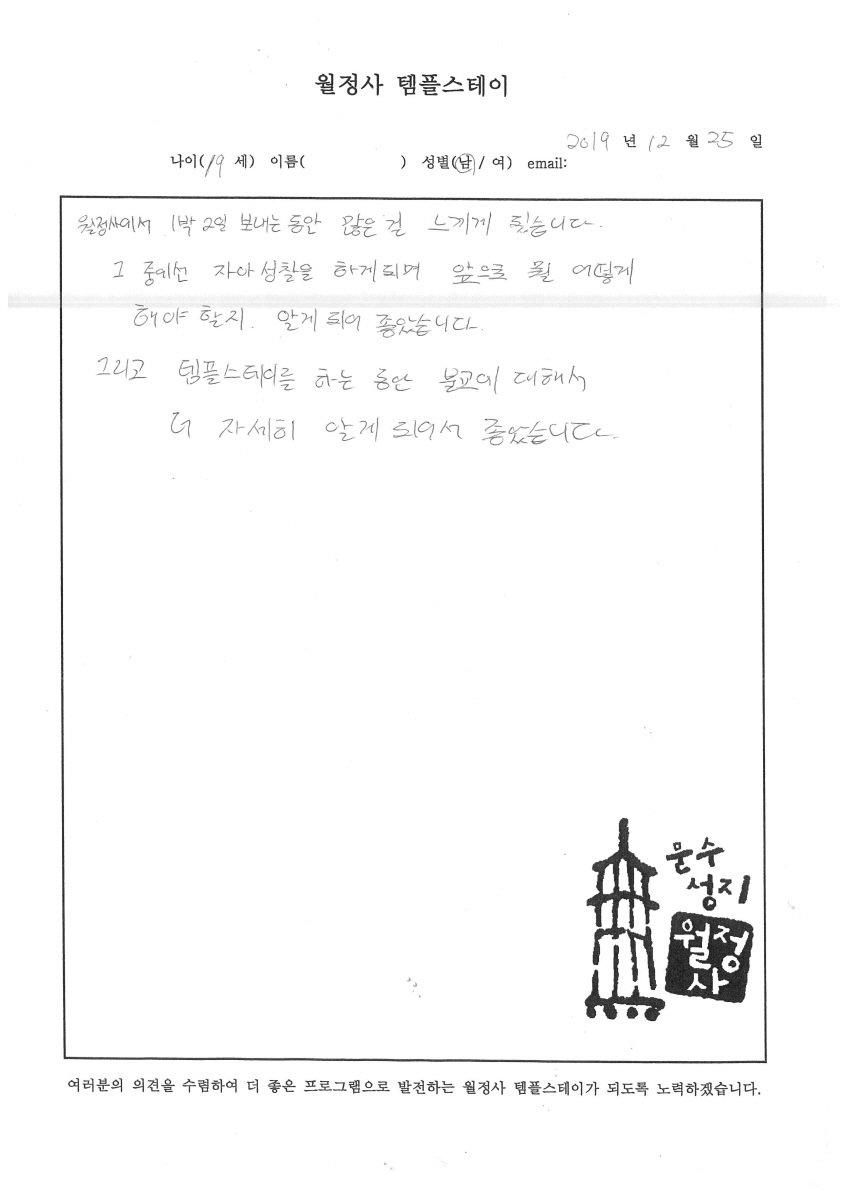 월정사 템플스테이
2019 년 12 월 25 일
나이(19 세) 이름( ) 성별(남/ 여) email:
월정사에서 1박 2일 보내는 동안 많은 걸 느끼게 됬습니다.
그 중에선 자아성찰을 하게되며 앞으로 뭘 어떻게
해야 할지. 알게 되어 좋았습니다.
그리고 템플스테이를 하는 동안 불교에 대해서
더 자세히 알게 되어서 좋았습니다.
문수
성지
월정
사
여러분의 의견을 수렴하여 더 좋은 프로그램으로 발전하는 월정사 템플스테이가 되도록 노력하겠습니다.